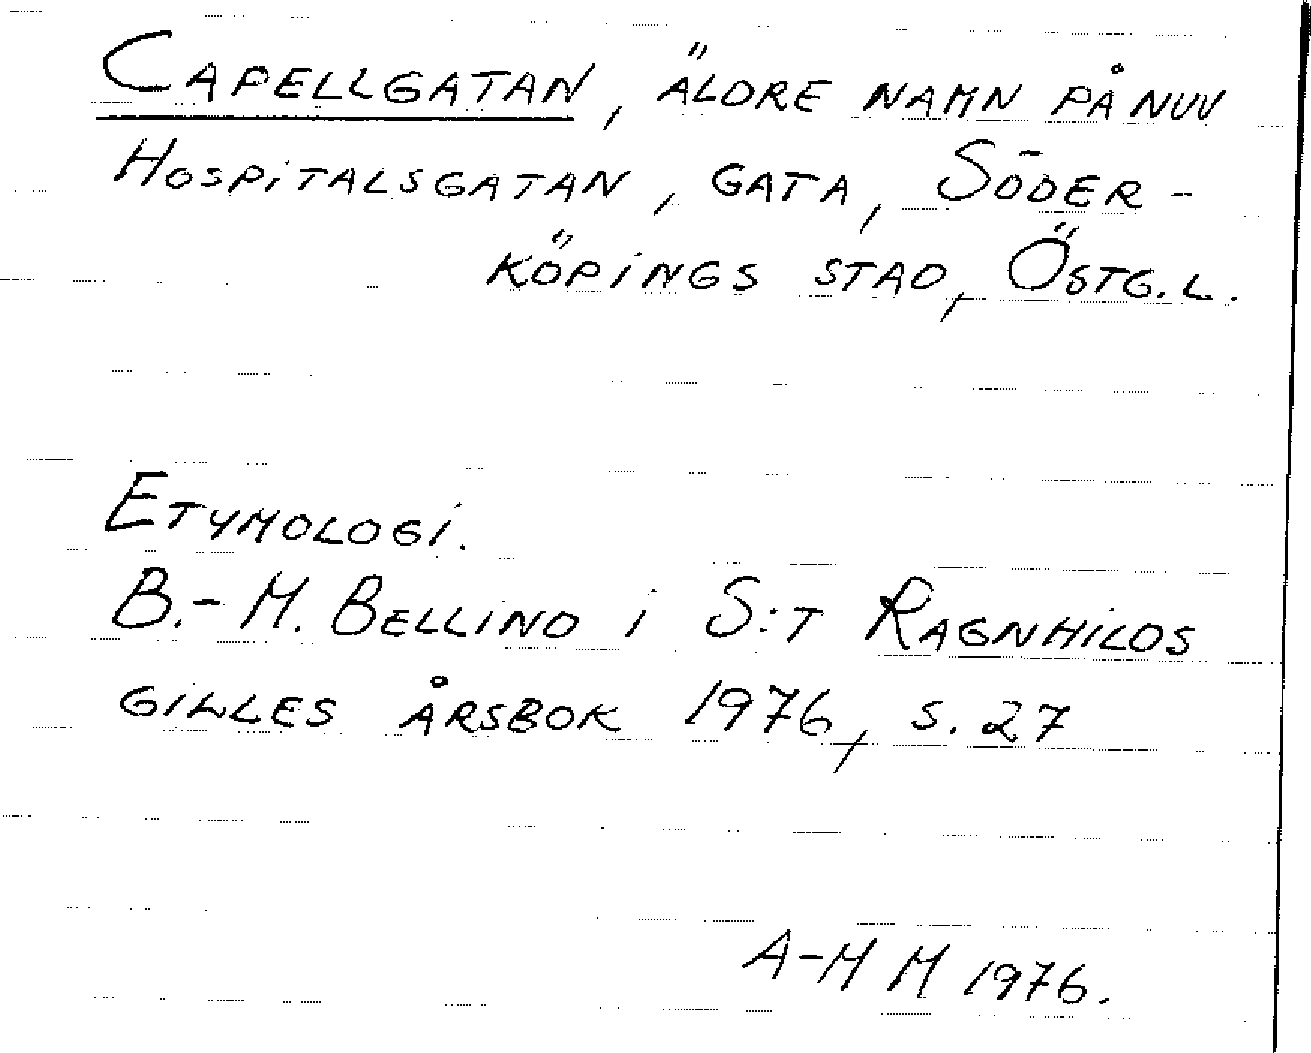 CAPELLGATAN, ÄLDRE NAMN PÅ NUV
HOSPITALSGATAN, GATA, SÖDER-
KÖPINGS STAD, ÖSTG.L.
ETYMOLOGI.
B.-M. BELLIND I S:T RAGNHILDS
GILLES ÅRSBOK 1976, S. 27
A-M M 1976.